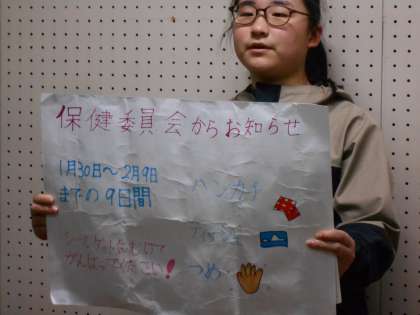 保健委員会からお知らせ
1月30日～2月9日
までの9日間
ハンカチ
ティッシュ
つめ
がんばってください！